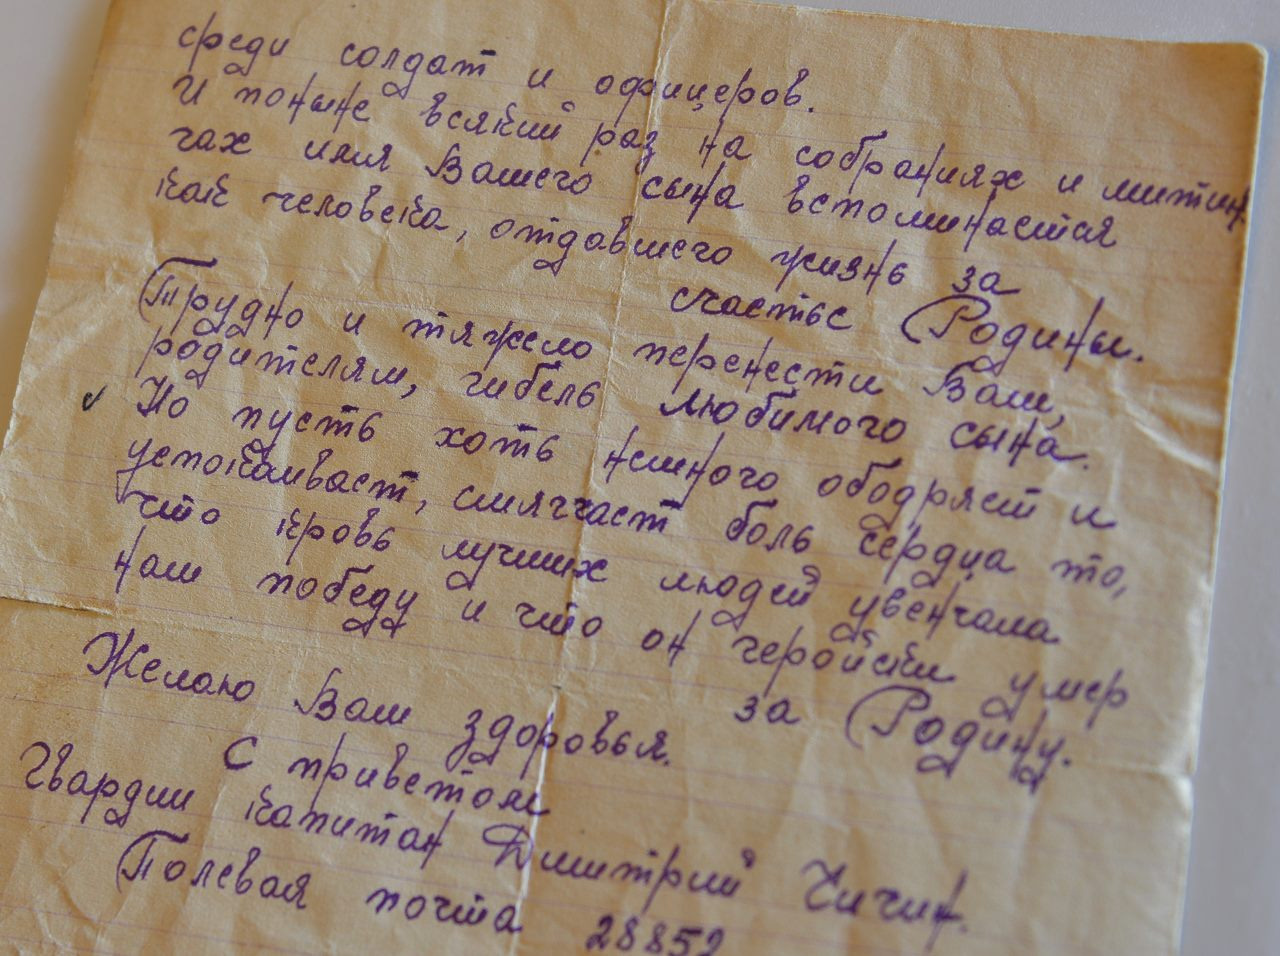 среди солдат и офицеров.
И поныне всякий раз на собраниях и митин-
гах имя Вашего сына вспоминается
как человека, отдавшего жизнь за
счастье Родины.
Трудно и тяжело перенести Вам,
родителям, гибель любимого сына.
Но пусть хоть немного ободряет и
успокаивает, смягчает боль сердца то,
что кровь лучших людей увенчала
нам победу и что он геройски умер
за Родину.
Желаю Вам здоровья.
С приветом
Гвардии капитан Дмитрий Чичин.
Полевая почта 28852